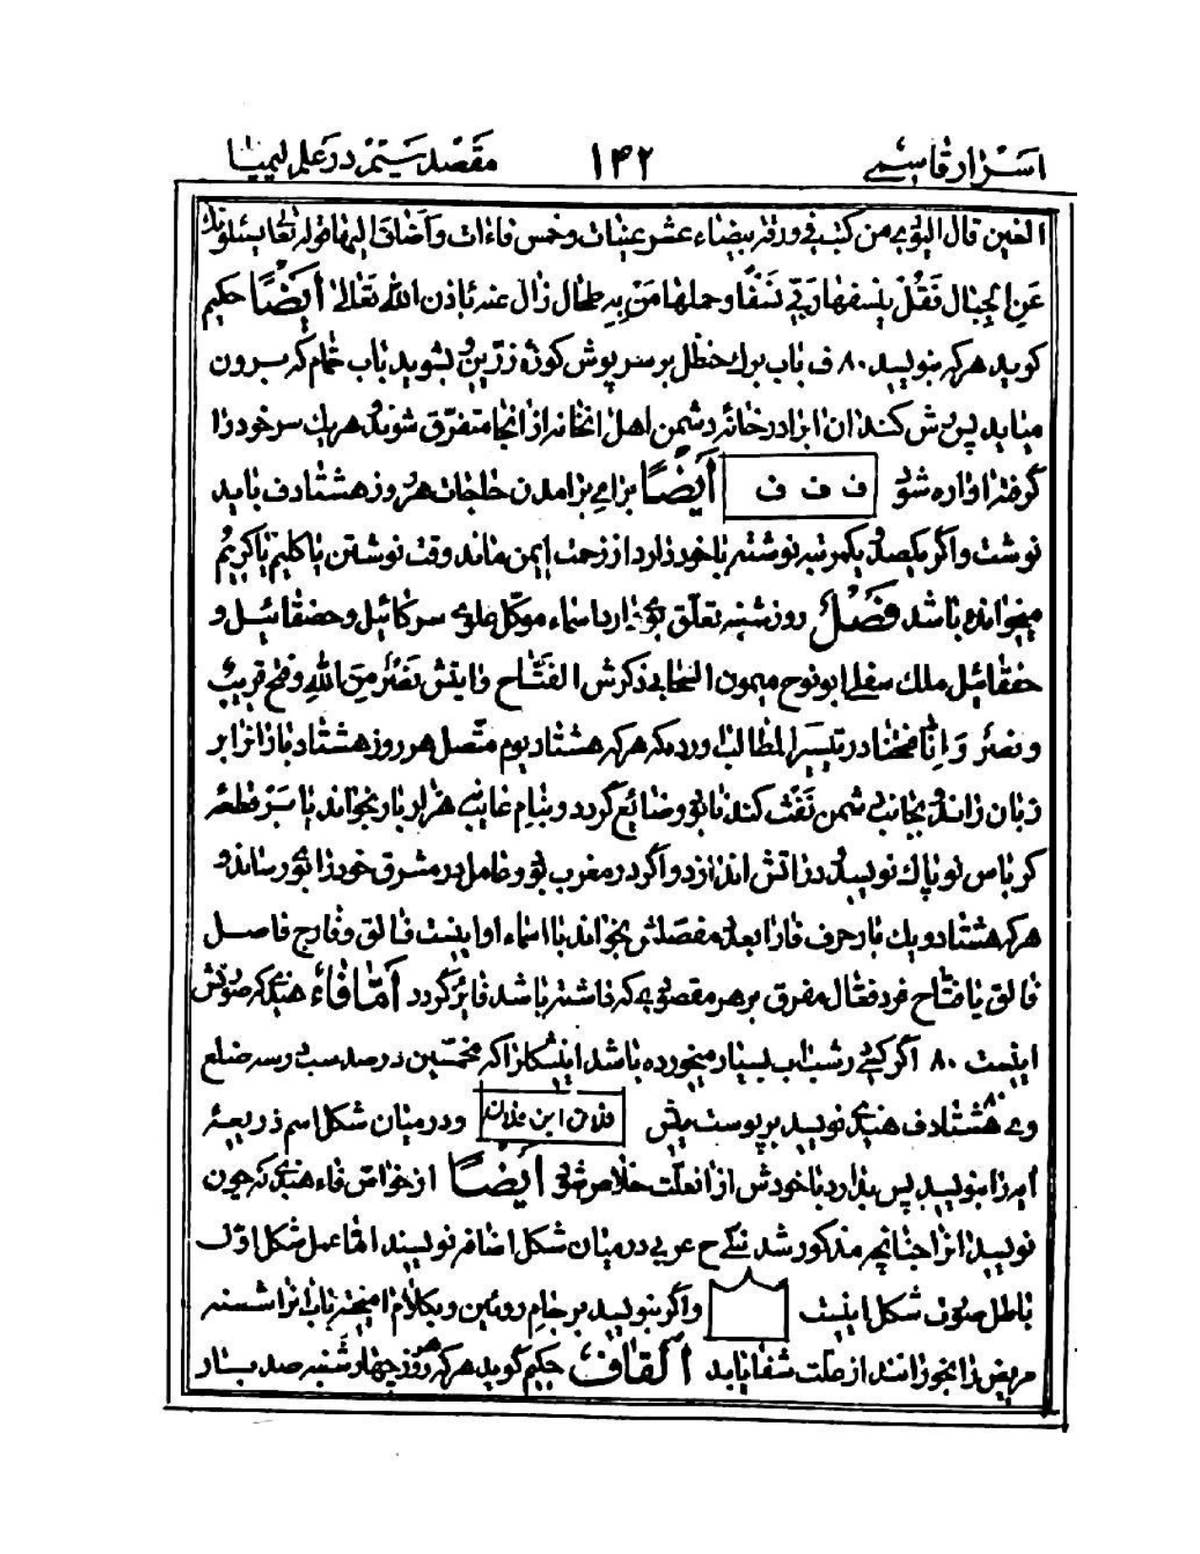 اسرار قاسمی ۱۴۲ مقصد سیم در علم لیمیا
الغین قال البونی من کتب فی ورقة بیضاء عشر عینات وخمس فاءات واضاف الیها قوله تعالی یسئلونك
عَنِ الجِبال فَقُل ینسفها رَبّی نَسفًا وحملها مَن بِهِ طحال زال عنه باذن اللّٰه تعالی أیضًا حکیم
کوید هرکه بنویسد ۸۰ ف باب برك حنظل بر سرپوش کوزهٔ زرین و بشوید باب حمام که بیرون
میاید پس پش کند ان ابرا در خانهٔ دشمن اهل انخانه از انجا متفرق شوند هریك سر خود را
کرفته اواره شوند ف ف ف أیضًا برای برامدن حاجات هر روز هشتاد ف باید
نوشت واکر یکصد یکمرتبه نوشته باخود دارد از زحمت ایمن ماند وقت نوشتن یا کلیم یا کریم
میخوانده باشد فَصلٌ روز شنبه تعلق دارد اسماء موکل علوی سرکائیل و
ملك سفلی ابونوح میمون السحابی ذکرش الفتّاح وایتش نَصرٌ مِنَ اللّٰهِ وفتحٌ قریبٌ
ونصرٌ وَاِنّا فتحنا در تیسیر المطالب اورده که هرکه هشتاد یوم متّصل هر روز هشتاد بار انرا بر
زبان راند و بجانب دشمن نَفَث کند نابود وضائع کردد وبنام غایبی هزار بار بخواند یا بر قطعه
کرباس نو پاك نویسد در اتش اندازد واکر در مغرب بود وعامل در مشرق خود را بدو رساند و
هرکه هشتاد ویك بار حرف فا را بعد مفصلش بخواند با اسماء او اینست فالق وفارج فاصل
فالق یا فتّاح فرد فعّال مفرق بر هر مقصودی که داشته باشد فایز کردد أمّا فاءِ هندی که صورتش
اینست ۸۰ اکر کسی در شب اب بسیار میخورده باشد اینشکل را که مخمسین درصد سی وسه ضلع
وی هشتاد ف هندی ۸۰ نویسد بر پوست میش فلان ابن فلان ودر میان شکل اسم ذریعهٔ
امر را بنویسد پس بدارد با خودش از انعلّت خلاص شود أیضًا از خواصّ فاء هندی که چون
نویسد انرا چنانچه مذکور شد ح عربی در میان شکل اضافه نویسند امّا عمل شکل اوّل
باطل شود شکل اینست واکر بنویسد بر جام روئین وبکلام امیخته باب انرا شسته
مریض را بخورانند از علت شفا یابد ألقاف حکیم کوید هرکه روز چهارشنبه صد بار